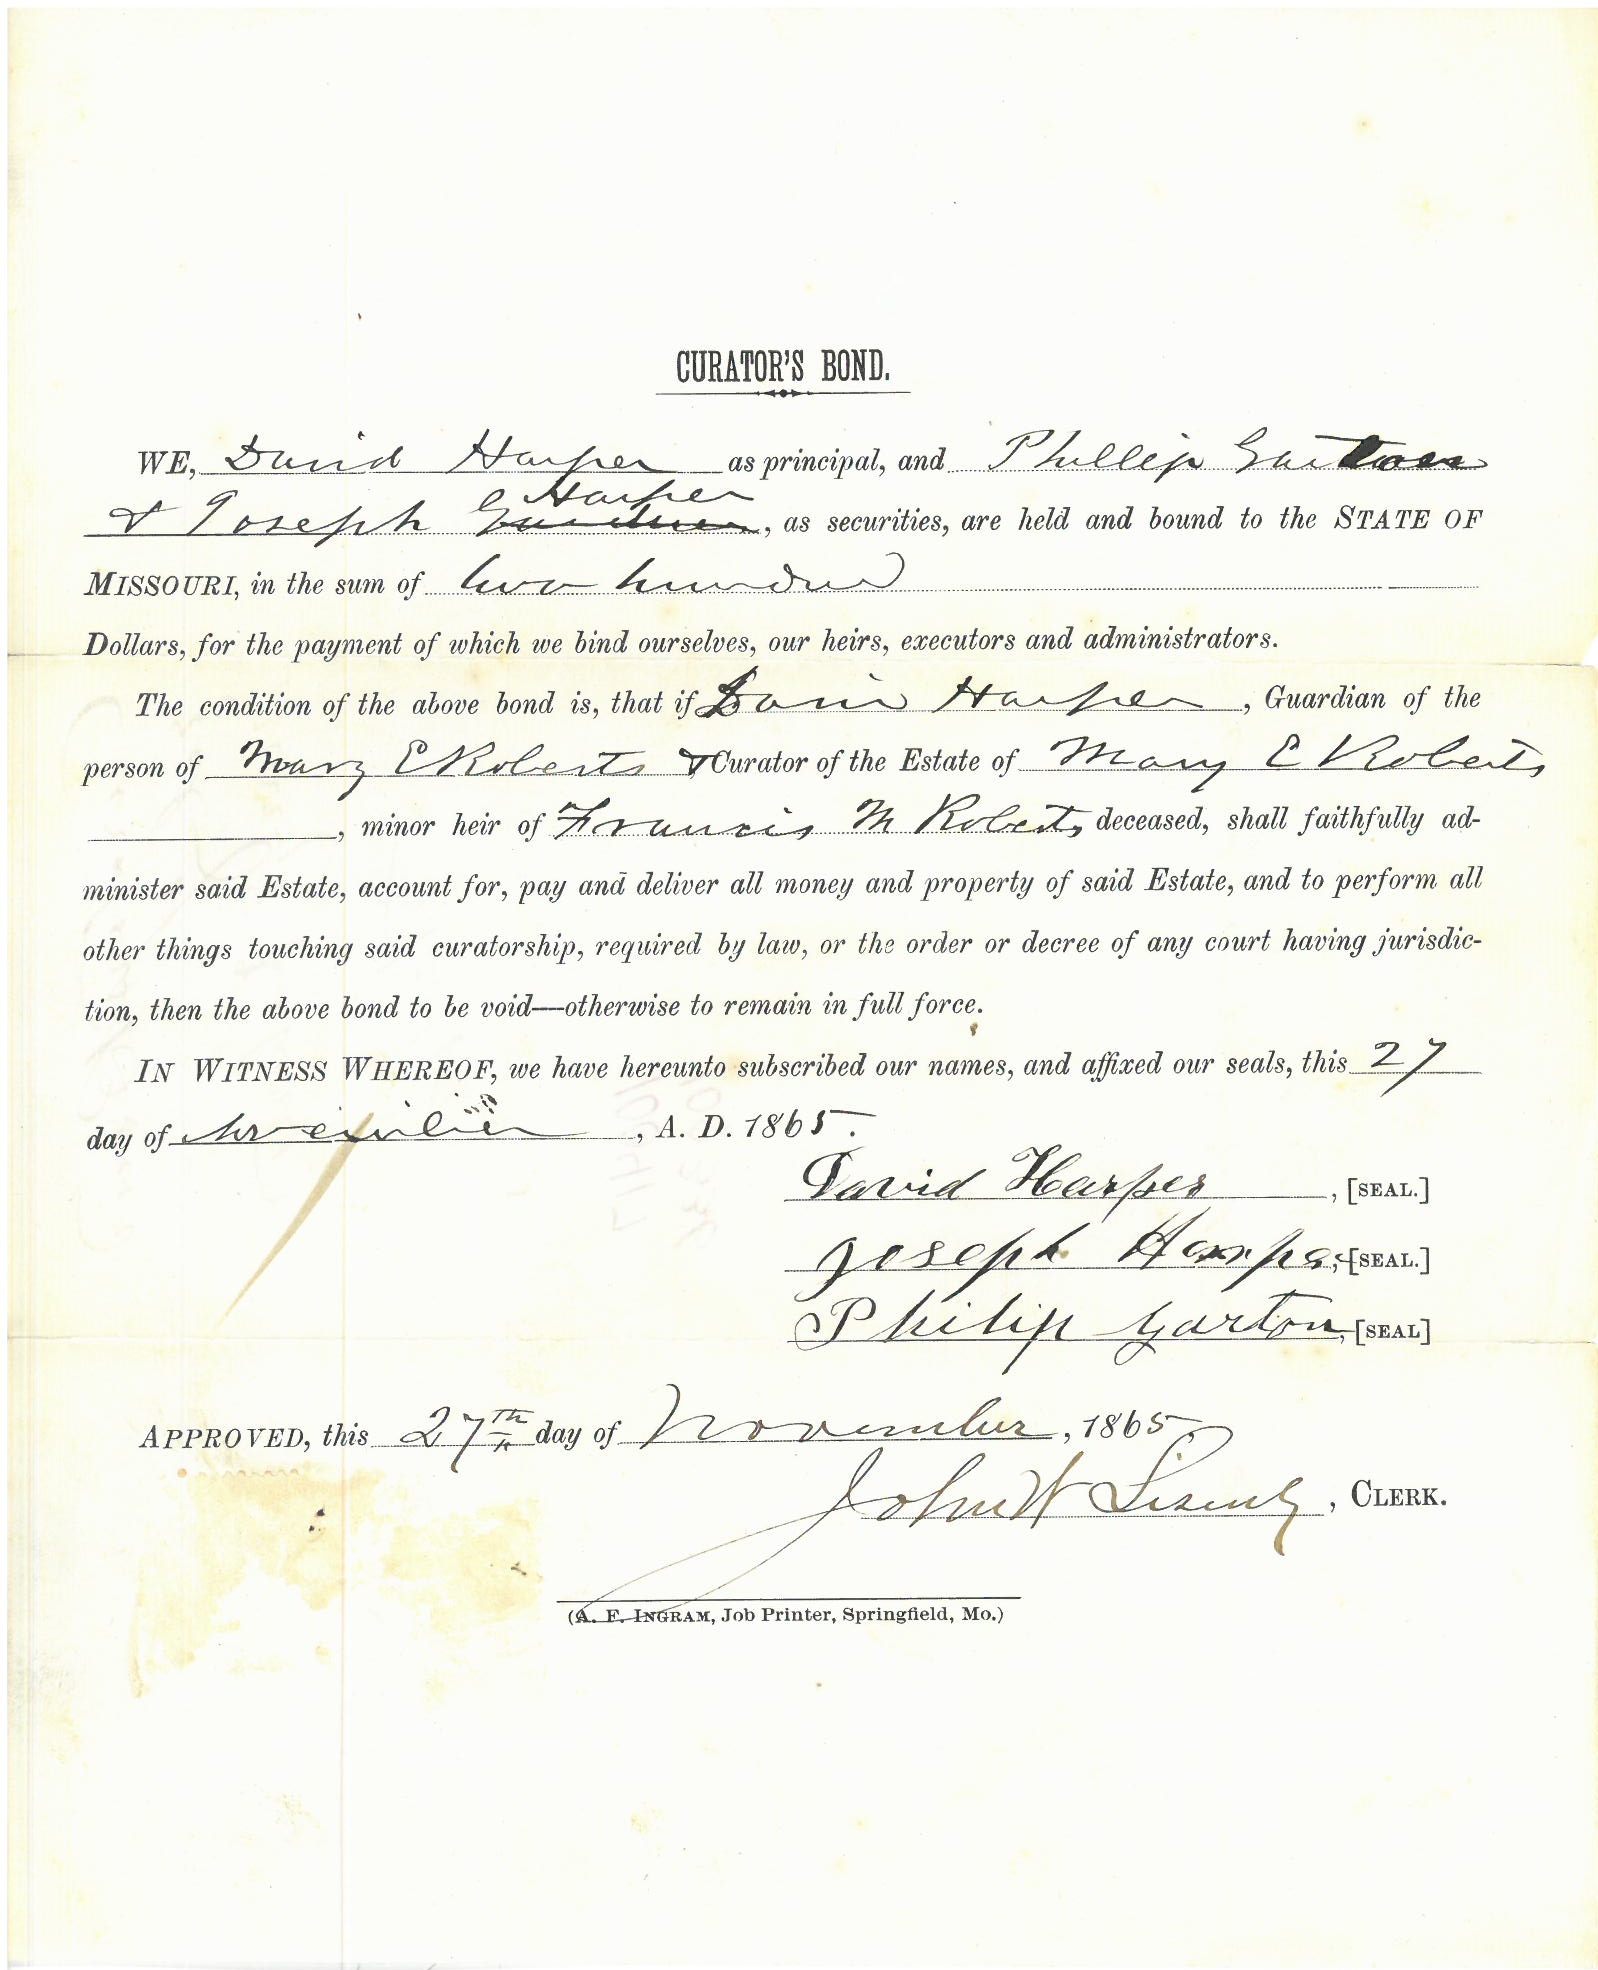 CURATOR'S BOND.
WE, David Harper as principal, and Phillip Garton
Harper
& Joseph , as securities, are held and bound to the STATE OF
MISSOURI, in the sum of two hundred
Dollars, for the payment of which we bind ourselves, our heirs, executors and administrators.
The condition of the above bond is, that if David Harper, Guardian of the
person of Mary E Roberts & Curator of the Estate of Mary E Roberts
, minor heir of Francis M Roberts deceased, shall faithfully ad-
minister said Estate, account for, pay and deliver all money and property of said Estate, and to perform all
other things touching said curatorship, required by law, or the order or decree of any court having jurisdic-
tion, then the above bond to be void—otherwise to remain in full force.
IN WITNESS WHEREOF, we have hereunto subscribed our names, and affixed our seals, this 27
day of November, A. D. 1865.
David Harper, [SEAL.]
Joseph Harper, [SEAL.]
Philip Garton, [SEAL]
APPROVED, this 27th day of November, 1865.
John W Lisenby, CLERK.
(A. F. INGRAM, Job Printer, Springfield, Mo.)